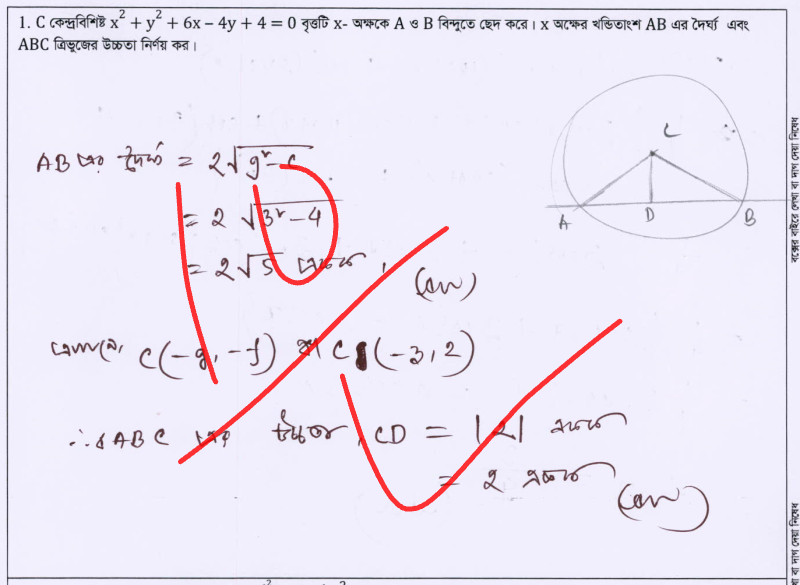 1. C কেন্দ্রবিশিষ্ট x² + y² + 6x – 4y + 4 = 0 বৃত্তটি x- অক্ষকে A ও B বিন্দুতে ছেদ করে। x অক্ষের খন্ডিতাংশ AB এর দৈর্ঘ্য এবং
ABC ত্রিভুজের উচ্চতা নির্ণয় কর।
C
A D B
AB এর দৈর্ঘ্য = 2√g² – c
= 2 √3² – 4
= 2√5 একক, (Ans)
এখানে, C(–g, –f) বা C (–3, 2)
∴ ΔABC এর উচ্চতা, CD = |2| একক
= 2 একক (Ans)
বক্সের বাইরে লেখা বা দাগ দেয়া নিষেধ
বা দাগ দেয়া নিষেধ